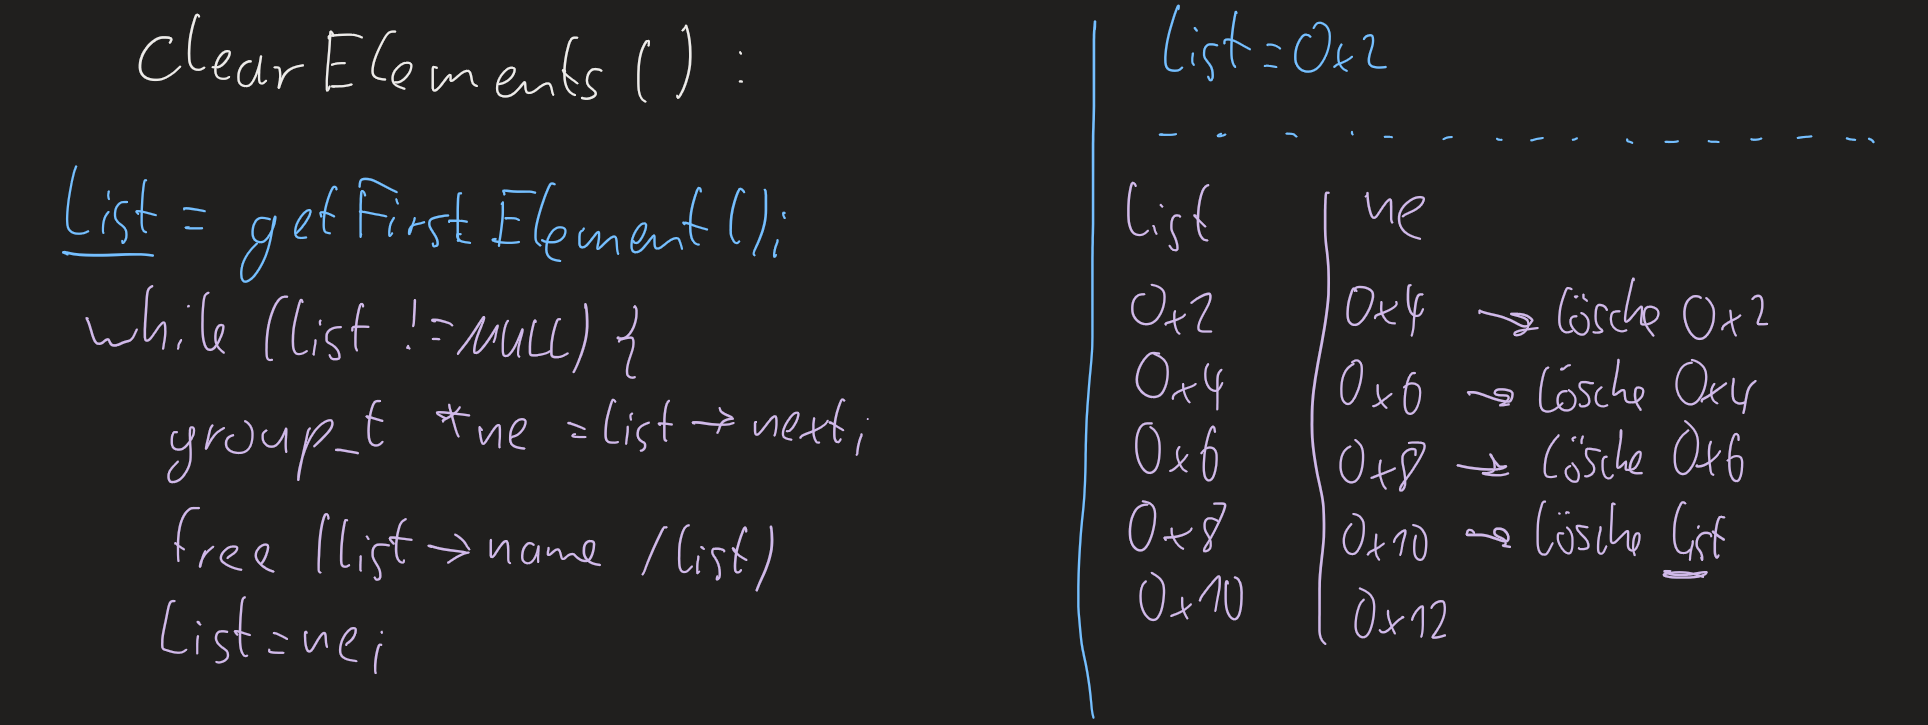 ClearElements():
List = getFirstElement();
while (list != NULL) {
group_t *ne = list → next;
free (list → name / list)
List = ne;
List = 0x2
List | ne
0x2 0x4 → lösche 0x2
0x4 0x6 → lösche 0x4
0x6 0x8 → lösche 0x6
0x8 0x10 → lösche List
0x10 0x12